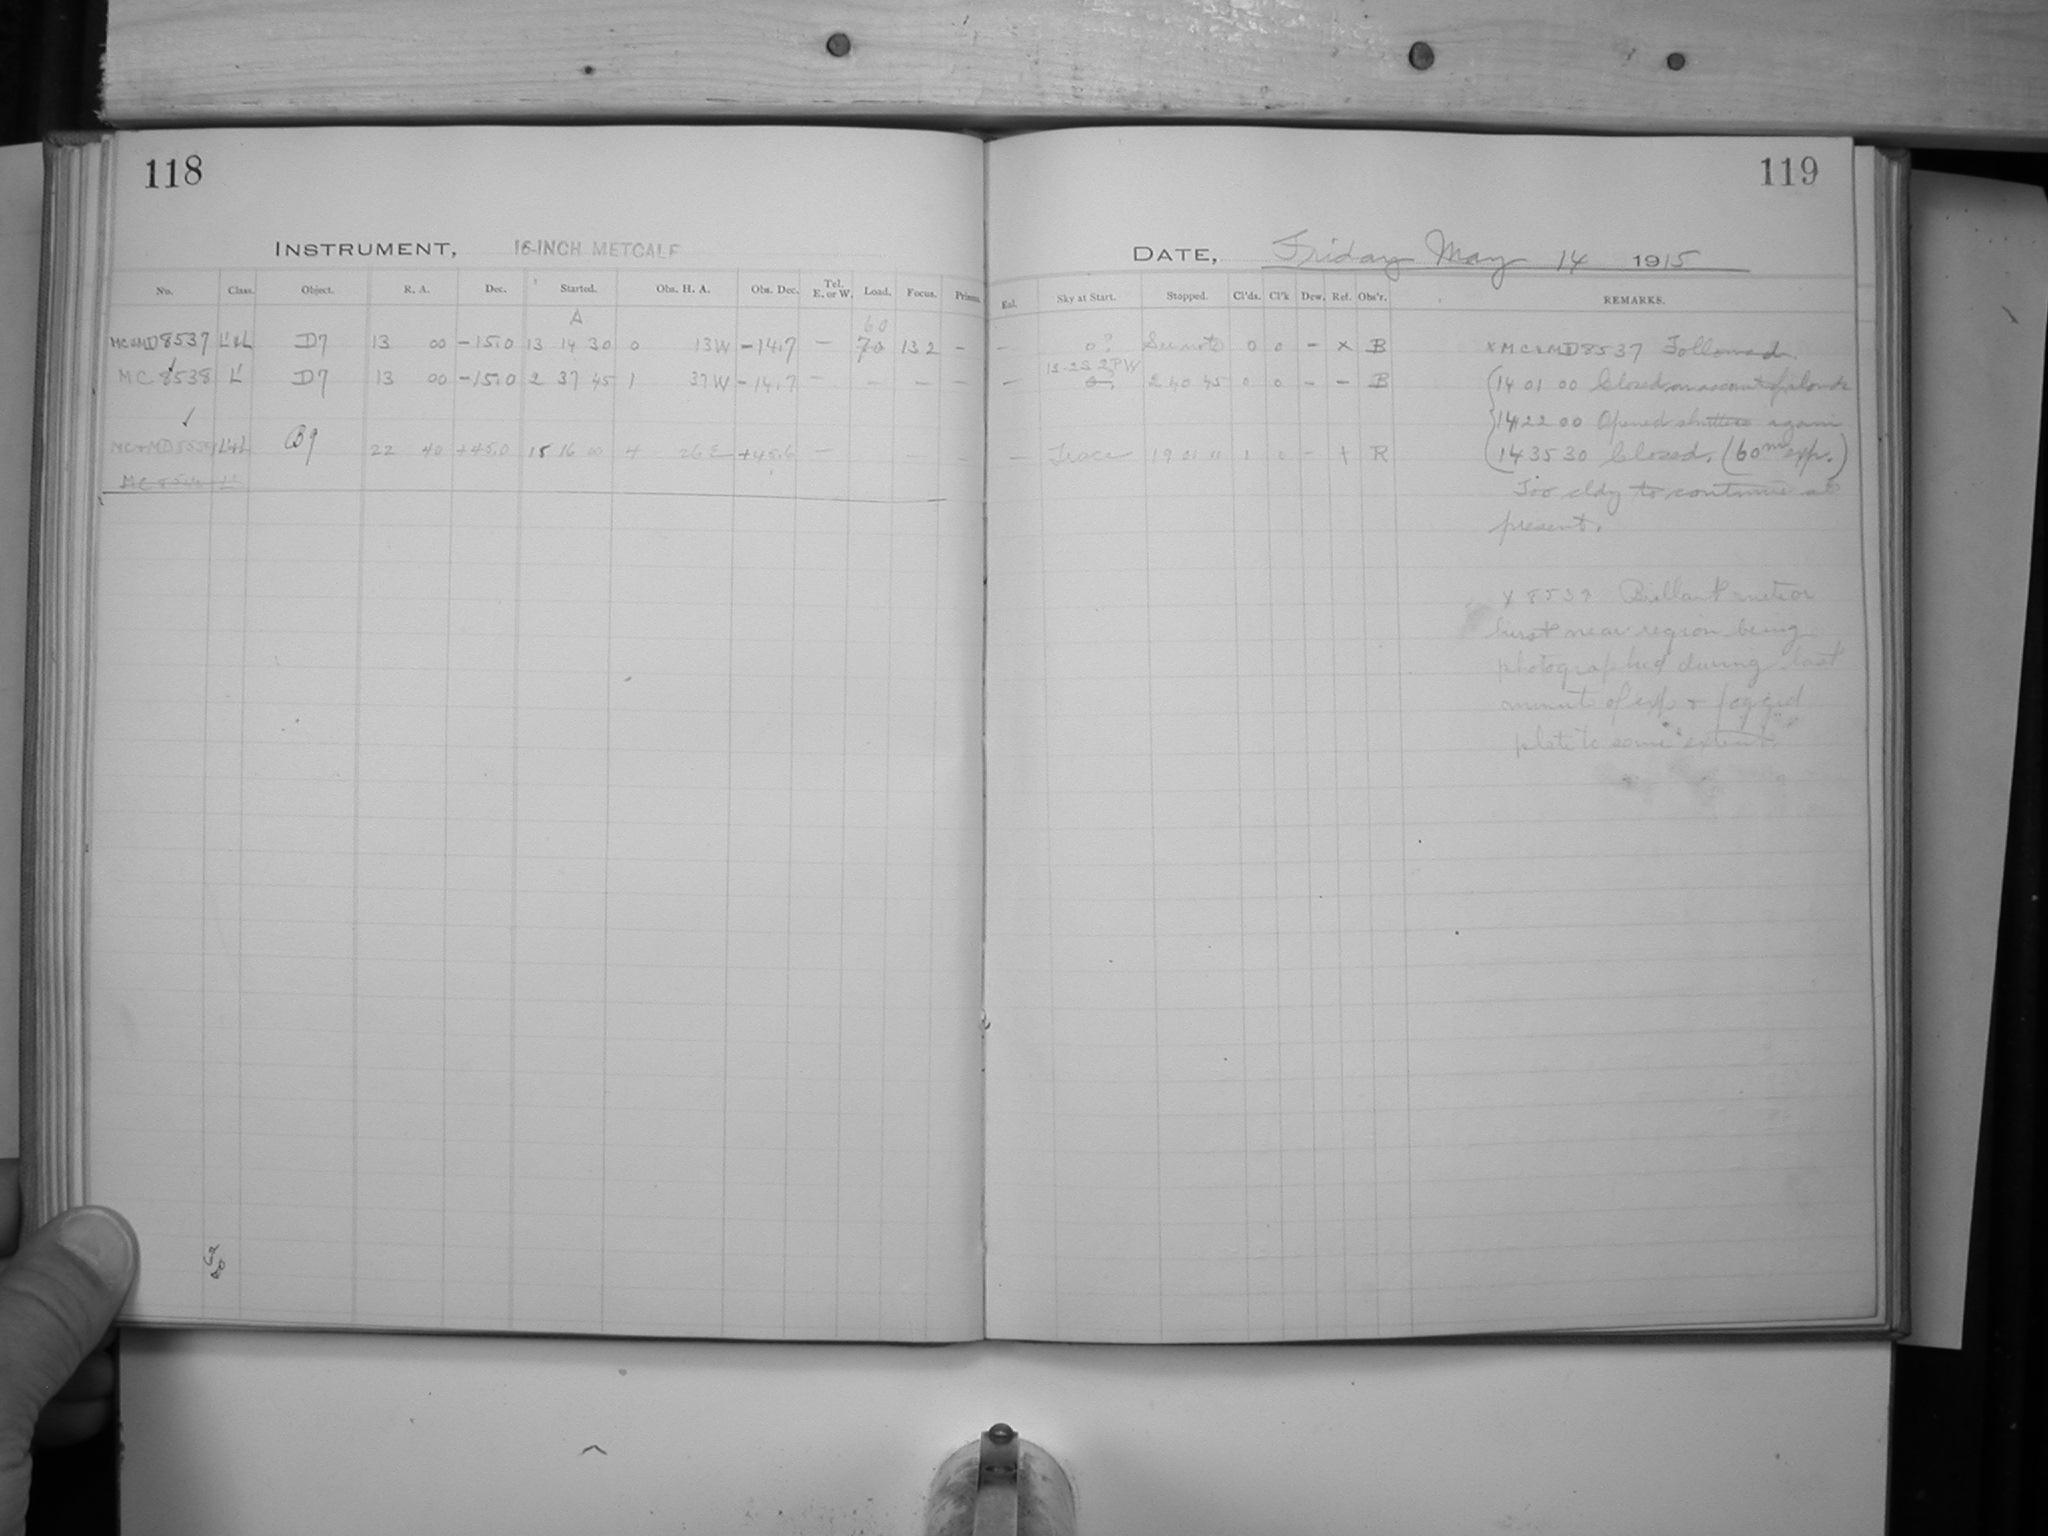 118
INSTRUMENT, 16-INCH METCALF
No. Class. Object. R. A. Dec. Started. Obs. H. A. Obs. Dec. Tel. E. or W. Load. Focus. Prisms.
A 60
MC&MD8537 L'&L D7 13 00 -15.0 13 14 30 0 13W -14.7 - 70 13 2 -
MC 8538 L' D7 13 00 -15.0 2 37 45 1 37W -14.7 - - - -
MC&MD8539 L'&L B9 22 40 +45.0 15 16 00 4 26E +45.6 - - - -
119
DATE, Friday May 14 1915
Sky at Start. Stopped. Cl'ds. Cl'k Dew. Ref. Obs'r. REMARKS.
- 0? See note 0 0 - x B x MC&MD8537 Followed.
13-2S 2PW
- 2 40 45 0 0 - - B 14 01 00 Closed on account of clouds
14 22 00 Opened shutters again
- Trace 19 01 " 1 0 - x R 14 35 30 Closed. (60m exp.)
Too cldy to continue at
present.
x 8539 Brilliant meteor
burst near region being
photographed during last
minute of exp & fogged
plate to some extent.